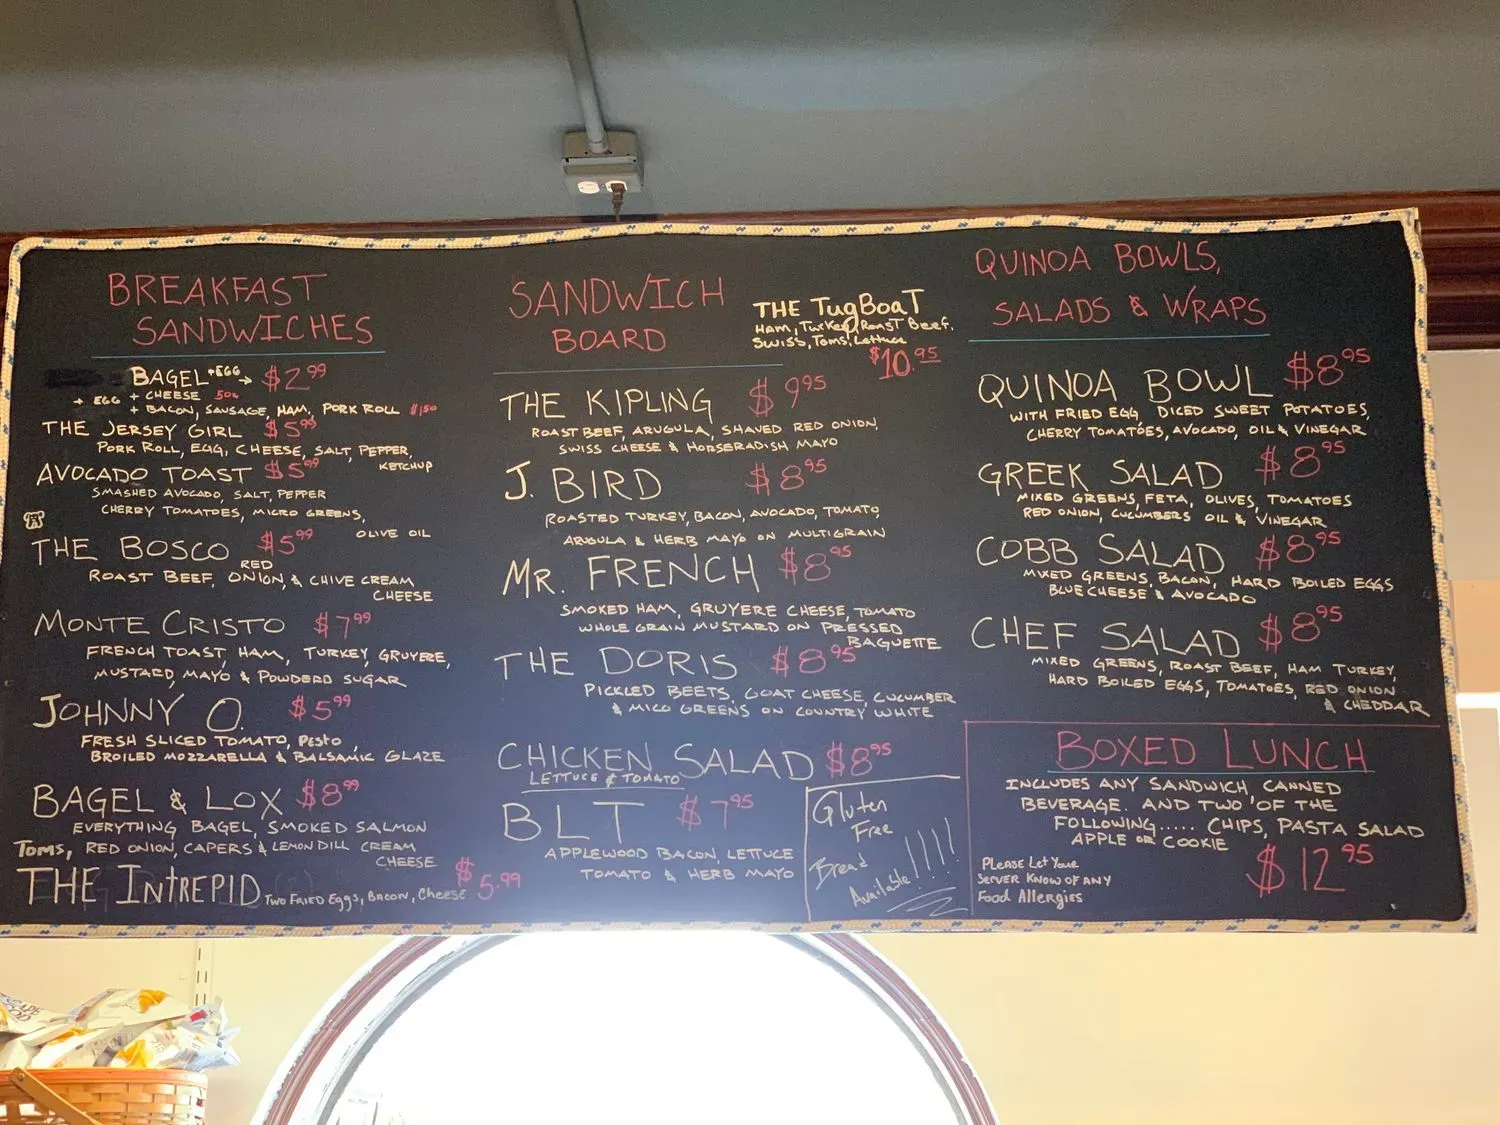 BREAKFAST
SANDWICHES
BAGEL +EGG → $2.99
+ EGG + CHEESE 50¢
+ BACON, SAUSAGE, HAM, PORK ROLL $1.50
THE JERSEY GIRL $5.99
PORK ROLL, EGG, CHEESE, SALT, PEPPER,
KETCHUP
AVOCADO TOAST $5.99
SMASHED AVOCADO, SALT, PEPPER
CHERRY TOMATOES, MICRO GREENS,
OLIVE OIL
THE BOSCO $5.99
RED
ROAST BEEF, ONION, & CHIVE CREAM
CHEESE
MONTE CRISTO $7.99
FRENCH TOAST, HAM, TURKEY, GRUYERE,
MUSTARD, MAYO & POWDERD SUGAR
JOHNNY O. $5.99
FRESH SLICED TOMATO, PESTO,
BROILED MOZZARELLA & BALSAMIC GLAZE
BAGEL & LOX $8.99
EVERYTHING BAGEL, SMOKED SALMON
TOMS, RED ONION, CAPERS & LEMON DILL CREAM
CHEESE
THE INTREPID TWO FRIED EGGS, BACON, CHEESE $5.99
SANDWICH
BOARD
THE TUGBOAT
HAM, TURKEY, ROAST BEEF,
SWISS, TOMS, LETTUCE
$10.95
THE KIPLING $9.95
ROAST BEEF, ARUGULA, SHAVED RED ONION,
SWISS CHEESE & HORSERADISH MAYO
J. BIRD $8.95
ROASTED TURKEY, BACON, AVOCADO, TOMATO,
ARUGULA & HERB MAYO ON MULTIGRAIN
MR. FRENCH $8.95
SMOKED HAM, GRUYERE CHEESE, TOMATO
WHOLE GRAIN MUSTARD ON PRESSED
BAGUETTE
THE DORIS $8.95
PICKLED BEETS, GOAT CHEESE, CUCUMBER
& MICO GREENS ON COUNTRY WHITE
CHICKEN SALAD $8.95
LETTUCE & TOMATO
BLT $7.95
APPLEWOOD BACON, LETTUCE
TOMATO & HERB MAYO
Gluten
Free
Bread
Available!!!!
QUINOA BOWLS,
SALADS & WRAPS
QUINOA BOWL $8.95
WITH FRIED EGG, DICED SWEET POTATOES,
CHERRY TOMATOES, AVOCADO, OIL & VINEGAR
GREEK SALAD $8.95
MIXED GREENS, FETA, OLIVES, TOMATOES
RED ONION, CUCUMBERS OIL & VINEGAR
COBB SALAD $8.95
MIXED GREENS, BACON, HARD BOILED EGGS
BLUE CHEESE & AVOCADO
CHEF SALAD $8.95
MIXED GREENS, ROAST BEEF, HAM TURKEY,
HARD BOILED EGGS, TOMATOES, RED ONION
& CHEDDAR
BOXED LUNCH
INCLUDES ANY SANDWICH, CANNED
BEVERAGE. AND TWO OF THE
FOLLOWING..... CHIPS, PASTA SALAD
APPLE OR COOKIE
$12.95
PLEASE LET YOUR
SERVER KNOW OF ANY
FOOD ALLERGIES